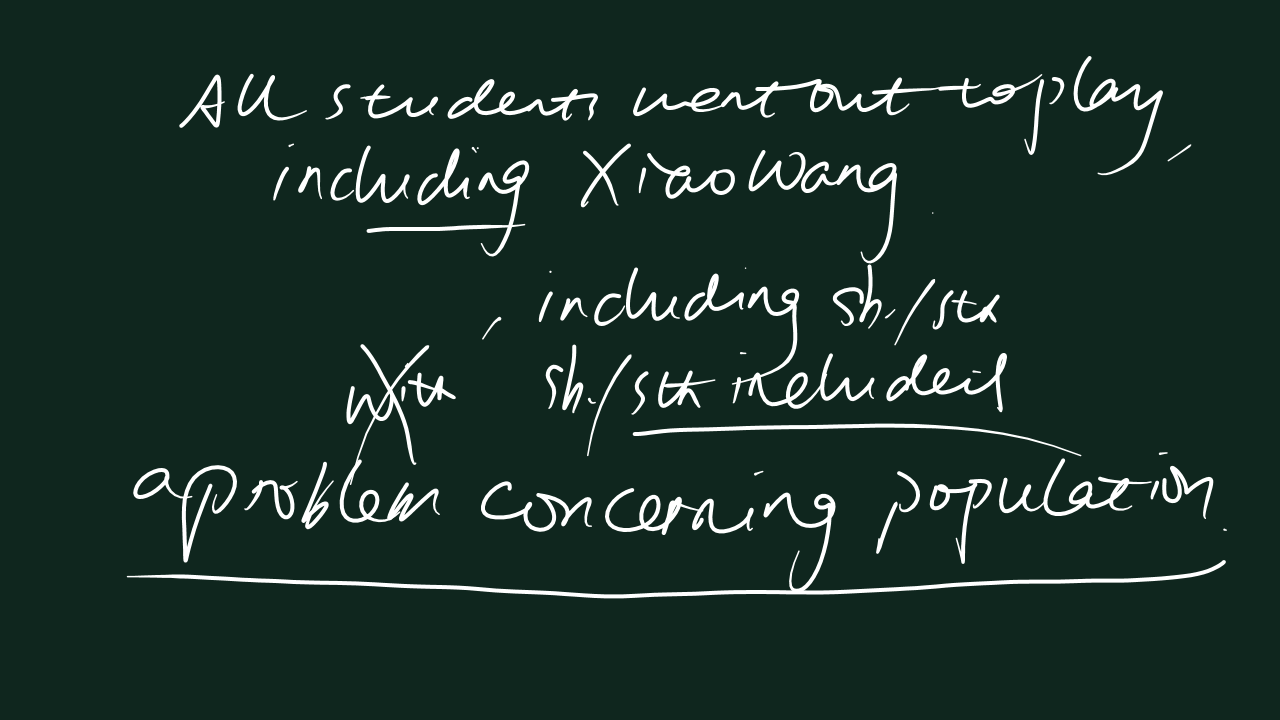 All students went out to play,
including XiaoWang
, including sb./sth
with sb./sth included
a problem concerning population.